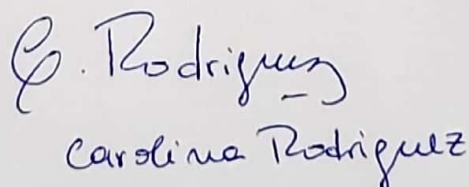 C. Rodriguez
Carolina Rodriguez